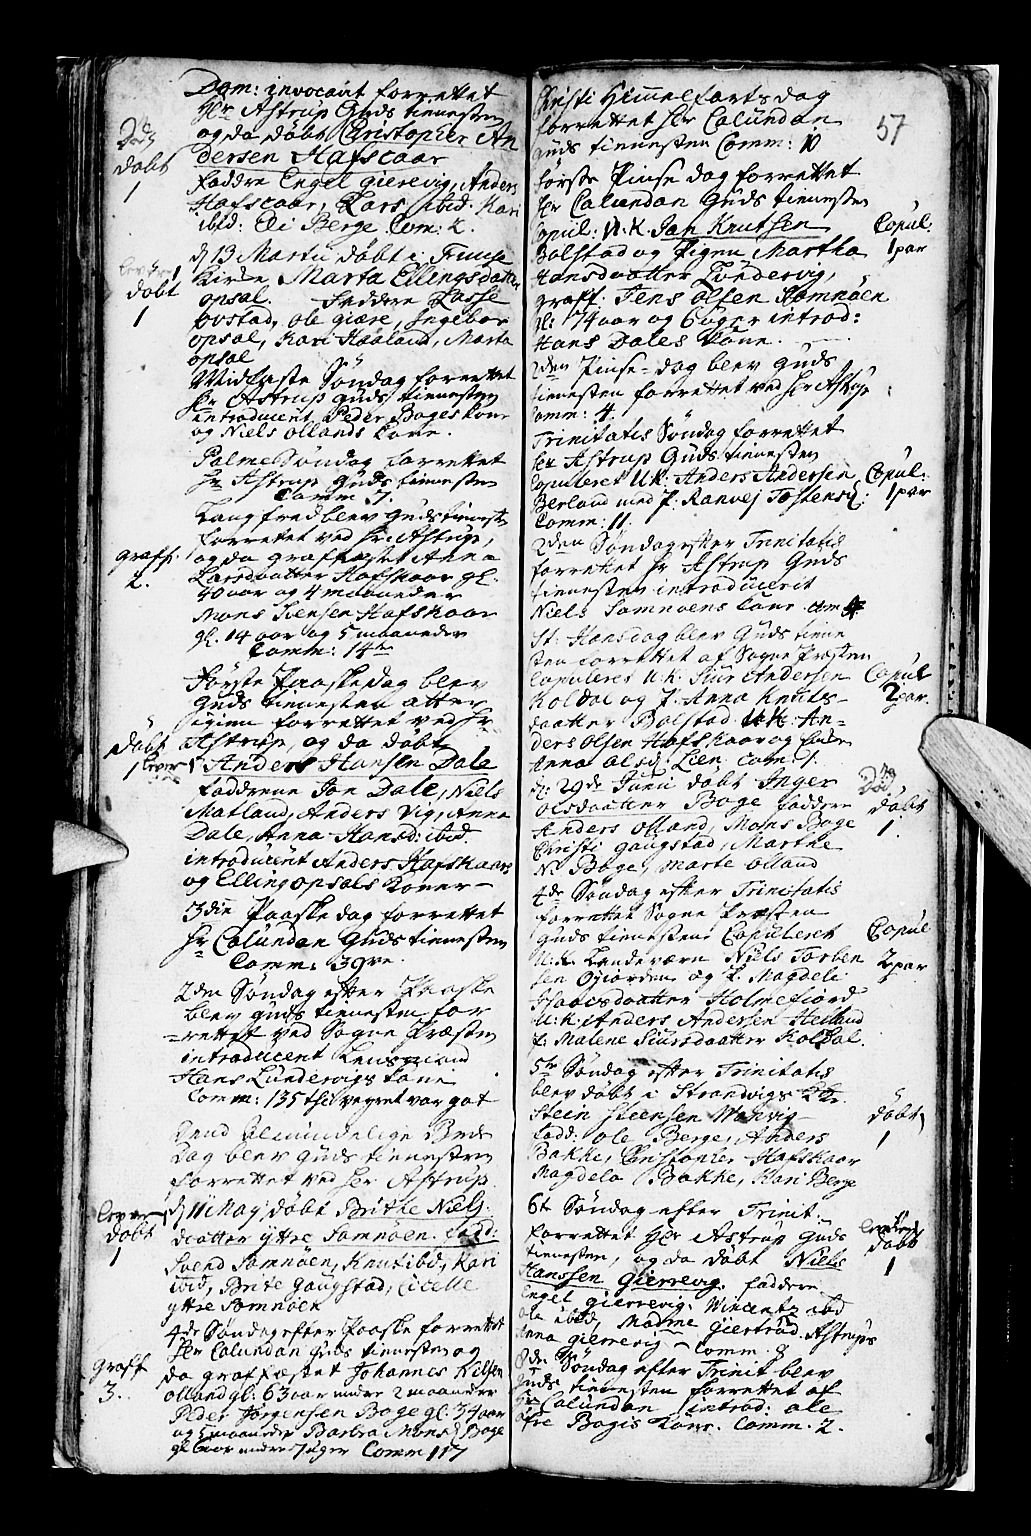 Dom: invocavit forrettet
Hr Astrup Guds tienesten
og da døbt Christopher An
dersen Hafscaar
døbt
1
faddre Engel gierevig, Anders
Hafscaar, Lars ibid: Kari
ibid: Eli Berge Com: 2.
d 13 Martii døbt i
Kirke Marta Ellingsdatter
døbt
1
opsal. Faddere Lasse
ovstad, ole giære, Ingebor
opsal, Kari Haaland, Marta
opsal
Midfaste Søndag forrettet
Hr Astrup Guds tienesten
introducerit Peder Boges kone
og Niels ollands kone.
Palme Søndag forrettet
Hr Astrup Guds tienesten
Comm 7.
Langfred blev Guds tienest
forrettet ved Hr Astrup,
graff.
2.
og da graffæstet Anna
Larsdaatter Hafskaar gl.
40 aar og 4 maaneder
Mons Svensen Hafskaar
gl. 14 aar og 5 maaneder
Comm: 14
Første Paaskedag blev
Guds tienesten atter
igien forrettet ved Hr
døbt
1
Astrup, og da døbt
Anders Hansen Dale
fadderne Jon Dale, Niels
Matland, Anders Vig, Anna
Dale, Anna Hansd: ibid.
introducerit Anders Hafskaars
og Elling opsals koner
3die Paaske dag forrettet
Hr Calundan Guds tienesten
Comm: 39
2den Søndag efter Paaske
blev guds tienesten for
=rettet ved Sogne Præsten
introducerit Lensmand
Hans Lundervigs kone
Comm: 135 thi vegret var got
dend almindelige Beds
dag blev Guds tienesten
forrettet ved Hr Astrup.
døbt
1
d 11 Maij døbt Brithe Niels
daatter yttre Samnøen. fadd:
Svend Samnøen, Knut ibid, Kari
ibid, Brite Gaugstad, Cicelle
yttre Samnøen
4de Søndag efter Paaske forrettet
Hr Calundan Guds tienesten og
graff
3.
da graffæstet Johannes Nielsen
olland gl: 63 aar mdre 2 maaneder
Peder Jørgensen Boge gl: 34 aar
og 5 maaneder Barbra Monsd Boge
Comm 117
57
Christi Himmelfarts dag
forrettet Hr Calundan
Guds tienesten Comm: 10
første Pinse dag forrettet
Hr Calundan Guds tienesten
Copul: U. K. Jan Knutsen
Copul.
1 par
Bolstad og Pigen Martha
Hansdaatter Lundervig,
graff. Jens olsen Samnøen
gl: 74 aar og 6 uger introd:
Hans Dales kone.
2den Pinse-dag blev guds
tienesten forrettet ved Hr Astrup
Comm: 4.
Trinitatis Søndag forrettet
Hr Astrup Guds tienesten
Copuleret U.K: Anders Andersen
Copul:
1 par
Berland med P. Ranvej Tostensd:
Comm: 11.
2den Søndag efter Trinitatis
forrettet Hr Astrup Guds
tienesten introducerit
Niels Samnøens kone
St: Hansdag blev Guds tiene
sten forrettet af Sogne Præsten
Copuleret U.K: Siur Andersen
Copul
2 par.
Koldal og P. Anna Knuts-
daatter Bolstad U.K: An=
ders olsen Hafskaar og
Anna olsd. Lien, Com: 1.
d: 29de Junii døbt Inger
olsdaatter Boge faddere
døbt
1.
Anders olland, Mons Boge
Christi Gaugstad, Marthe
N. Boge, Marte olland
4de Søndag efter Trinitatis
forrettet Sogne Præsten
Guds tienesten: Copuleret
Copul
2 par
U.K: Landsværn Niels Torben
sen Øgiorden og P. Magdeli
Isaacsdaatter Holmefiord
U:K: Anders Andersen Hetland
P: Malene Siursdaatter Koldal.
5te Søndag efter Trinitatis
blev døbt i Strandvigs
Steen Steensen
døbt
1
fadd: ole Berge, Anders
Bakke, Christopher Hafskaar
Magdela Bakke, Kari Berge
6te Søndag efter Trinit:
forrettet Hr Astrup Guds
døbt
1
tienesten, og da døbt Niels
Hanssen Gierrevig. faddere
Engel gierrevig, Wincentz ibd
ole ibid, Madme Giertrud Astrups
Anna gierrevig Comm: 8
8de Søndag efter Trinit blev
Guds tienesten forrettet af
Hr Calundan introd: ole
øfre Bogis kone. Comm: 2.